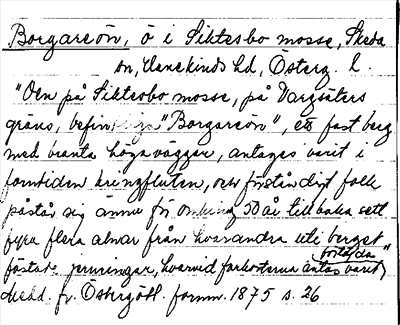 Borgareön, ö i Siktesbo mosse, Skeda
sn, Hanekinds hd, Österg. l.
"Den på Siktesbo mosse, på Vargsäters
gräns, befintliga "Borgareön", ett fast berg
med branta höga väggar, antages varit i
forntiden kringfluten, och förståndigt folk
påstår sig ännu för omkring 50 år tillbaka sett
fyra flera alnar från hvarandra uti berget
fästade jernringar, hvarvid farkosterna antas varit
bortbundna"
Medd. fr. Östergötl. fornm. 1875 s. 26